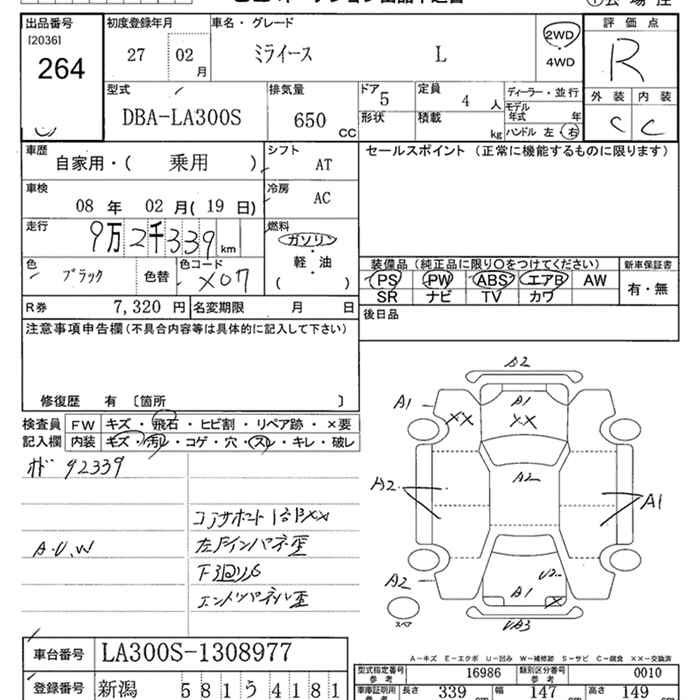 出品番号
[2036]
264
初度登録年月
27 02 月
車名・グレード
ミライース L
2WD
4WD
評価点
R
型式
DBA-LA300S
排気量
650 CC
ドア
5
形状
定員
4 人
積載
kg
ディーラー・並行
モデル年式 年
ハンドル 左 右
外装 内装
C C
車歴
自家用・( 乗用 )
シフト
AT
セールスポイント (正常に機能するものに限ります)
車検
08 年 02 月(19 日)
冷房
AC
走行
9万2千339 km
燃料
ガソリン
軽・油
( )
色
ブラック
色替
色コード
X07
装備品 (純正品に限り○をつけてください)
PS PW ABS エアB AW
SR ナビ TV カワ
新車保証書
有・無
R券 7,320 円
名変期限 月 日
後日品
注意事項申告欄 (不具合内容等は具体的に記入して下さい)
修復歴 有 〔箇所 〕
検査員記入欄
FW キズ・飛石・ヒビ割・リペア跡・×要
内装 キズ・汚レ・コゲ・穴・スレ・キレ・破レ
92339
コアサポート
A.U.W
A2
A1
A1
XX
XX
A2
A2
A1
A2
U2
A1
X
スペア
A-キズ E-エクボ U-凹み W-補修跡 S-サビ C-腐食 ××-交換済
車台番号
LA300S-1308977
型式指定番号 参考
16986
類別区分番号 参考
0010
登録番号
新潟 581う4181
車庫証明用 参考
長さ 339 cm
幅 147 cm
高さ 149 cm